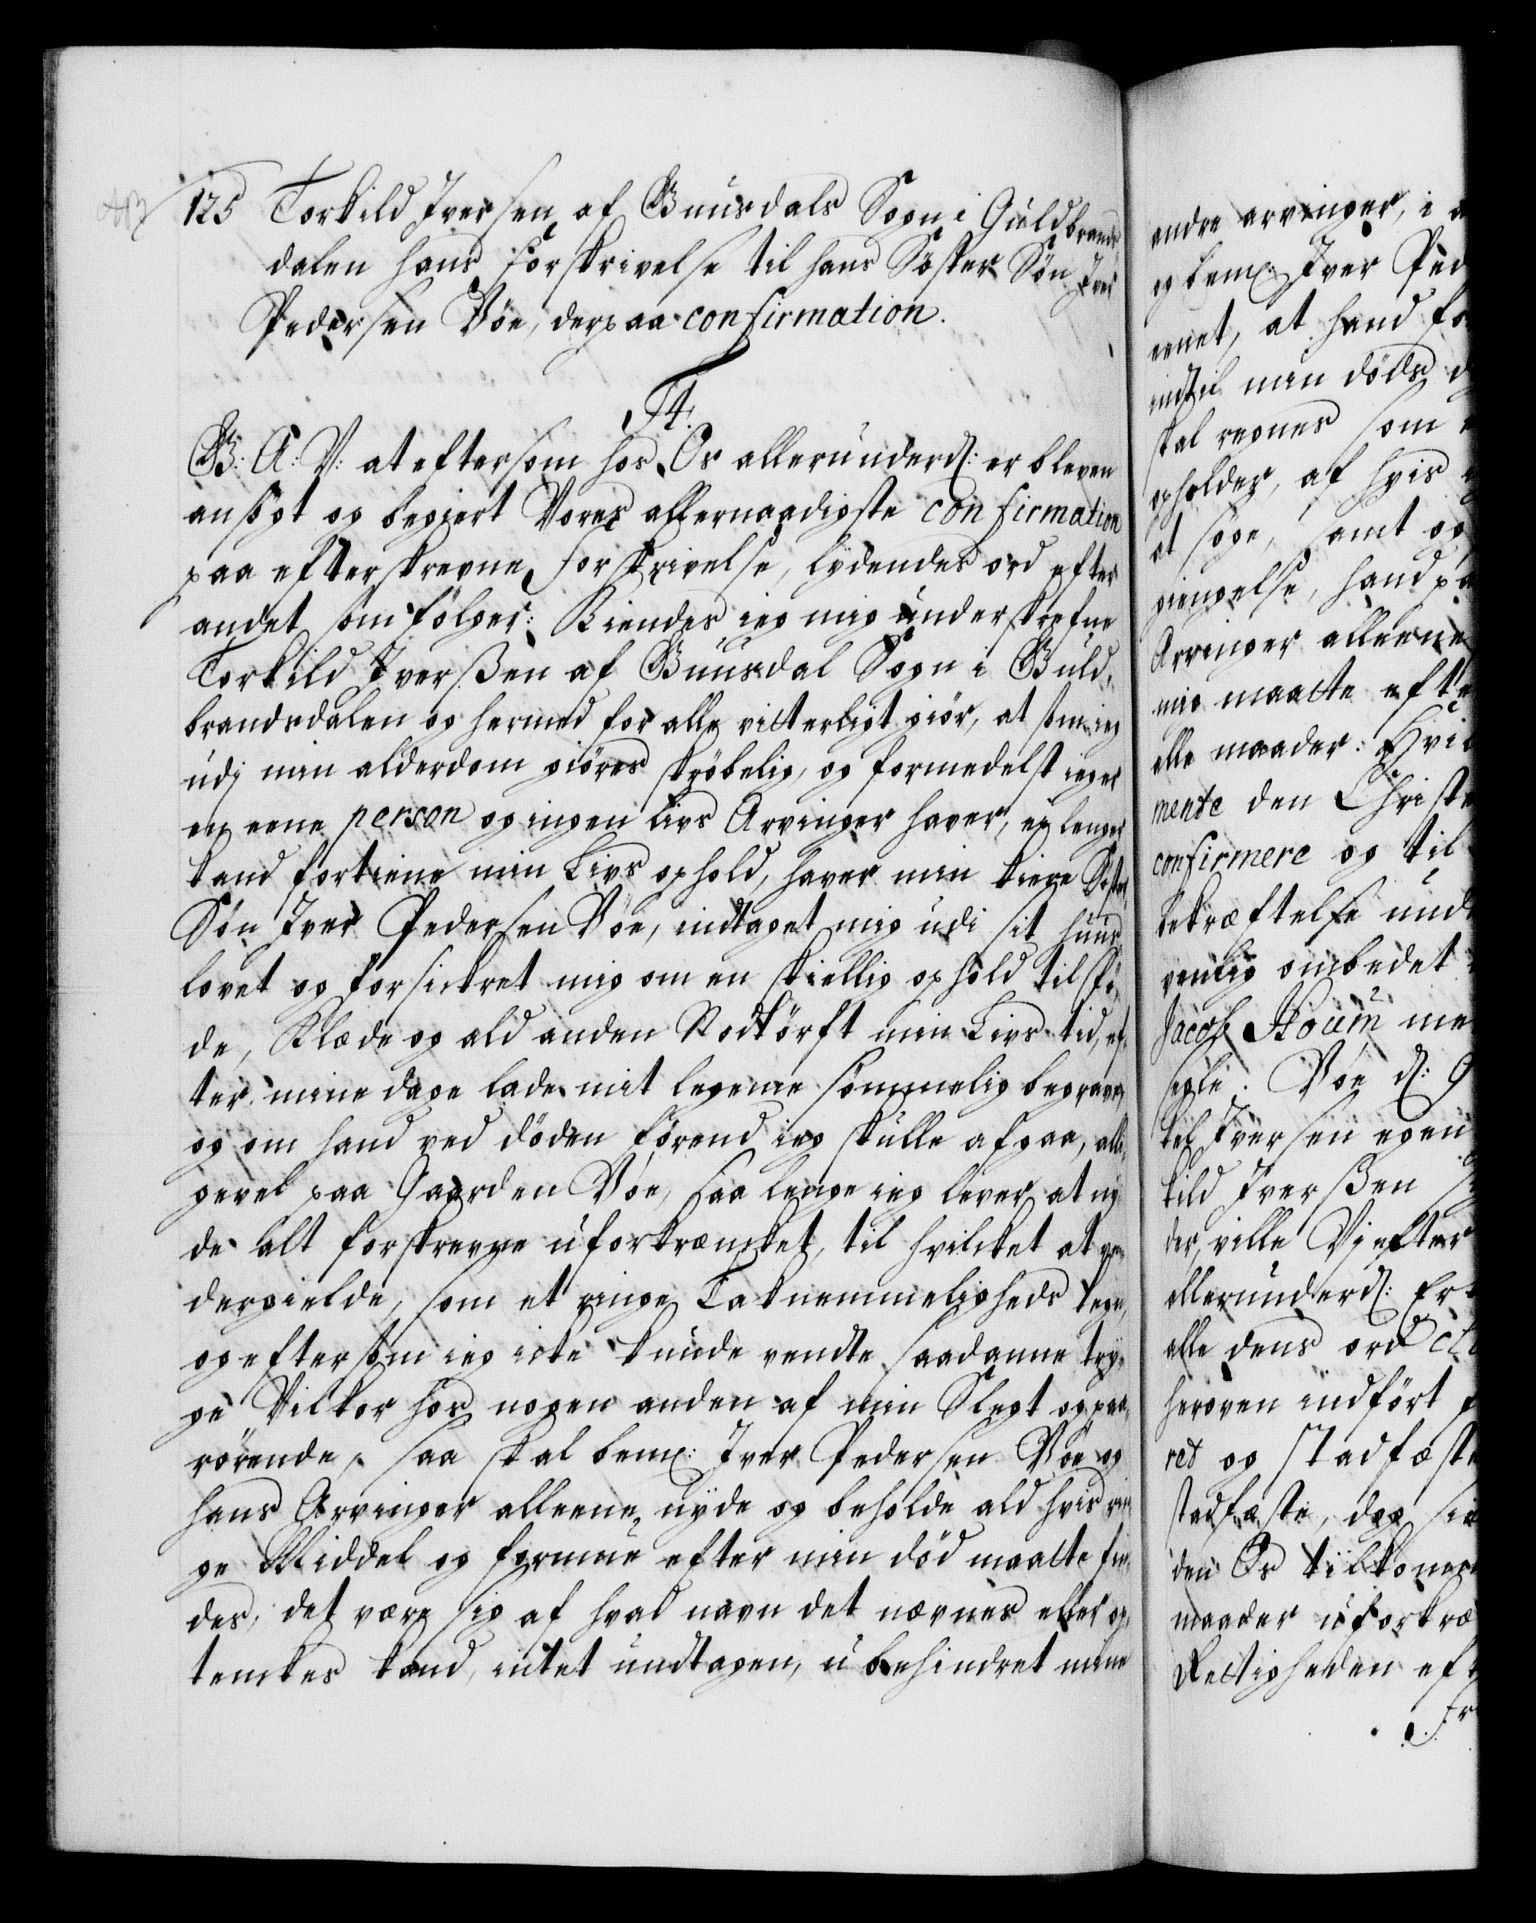 125 Torkild Iversen af Buusdals Sogn i Guldbrands
dalen hans Forskrivelse til hans Søster Søn Iver
Pedersen Vöe, derpaa confirmation.
F. 4.
G: A: V: at eftersom hos Os allerunderd: er bleven
ansögt og begiert Vores allernaadigste confirmation
paa efterskrevne forskrivelse, lydendes ord efter
andet som fölger: Kiendes ieg mig underskrefne
Torkild Iverßen af Buusdal Sogn i Guld,
brandsdalen og hermed for alle vitterligt giör, at som ieg
udj min alderdom giöres skröbelig, og formedelst ieg er
en eene person og ingen Livs Arvinger haver, ej lenger
kand fortiene min Livs ophold, haver min kiere Söster
Søn Iver Pedersen Vöe, indtaget mig udi sit huus,
lovet og forsickret mig om en skiellig ophold til fö,
de, Klæde og ald anden Nodtörft min Livs tid, ef,
ter mine dage lade mit legeme sömmelig begrave,
og om hand ved döden förend ieg skulle afgaa, alli,
gevel paa Gaarden Vöe, saa lenge ieg lever at ny,
de alt forskrevne uforkræncket, til hvilcket at ve,
dergielde, som et ringe Taknemmeligheds tegn,
og eftersom ieg icke kunde vendte saadanne try,
ge Vilkor hos nogen anden af min Slegt og paa,
rörende, saa skal bem: Iver Pedersen Vöe og
hans Arvinger alleene nyde og beholde ald hvis rin,
ge Middel og formue efter min död maatte fin,
des, det være sig af hvad navn det nævnes eller op,
tenckes kand, intet undtagen, ubehindret mine
andre arvinger, i
og bem: Iver Ped
meent, at hand
indtil min döds
skal regnes som
opholder, af hvis
at söge, samt og
giengelse, hand
Arvinger alleene
mig maatte efte
alle maader. Hvil
mente den Christe
confirmere og til
bekræftelse und
venlig ombedet
Jacob Houm me
segle. Vöe d: 9
kel Iversen egen
kild Iverßen
der, ville Vj efter
allerunderd:
alle dens ord
heroven indfört
ret og Stadfæste
stadfæste, dog
den Os tilkomm
maader uforkræ
Rettigheden ef
Fr